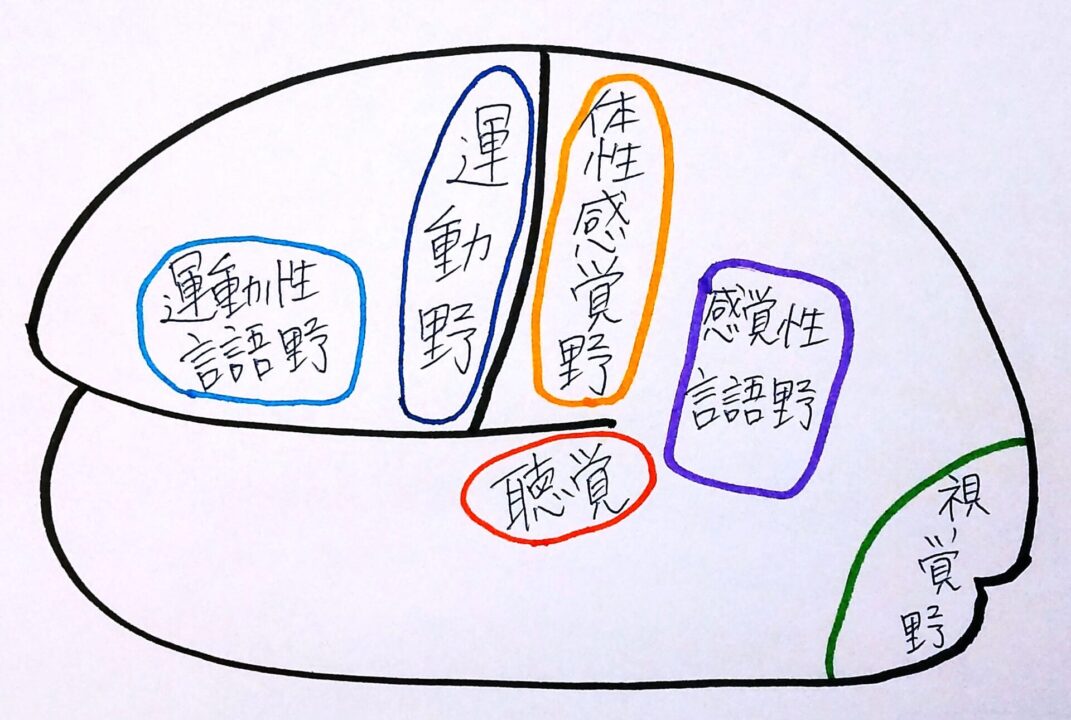 運動野
体性感覚野
運動性
言語野
感覚性
言語野
聴覚
視覚野